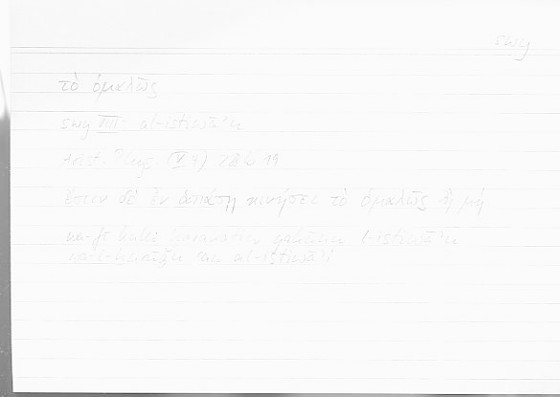 swy
τὸ ὁμαλῶς
swy VIII: al-istiwāʾu
Arist Phys (V 4) 228 b 19
ἔστιν δὲ ἐν ἁπάσῃ κινήσει τὸ ὁμαλῶς ἢ μή
wa-fī kulli ḥarakatin l-istiwāʾu
al-istiwāʾi